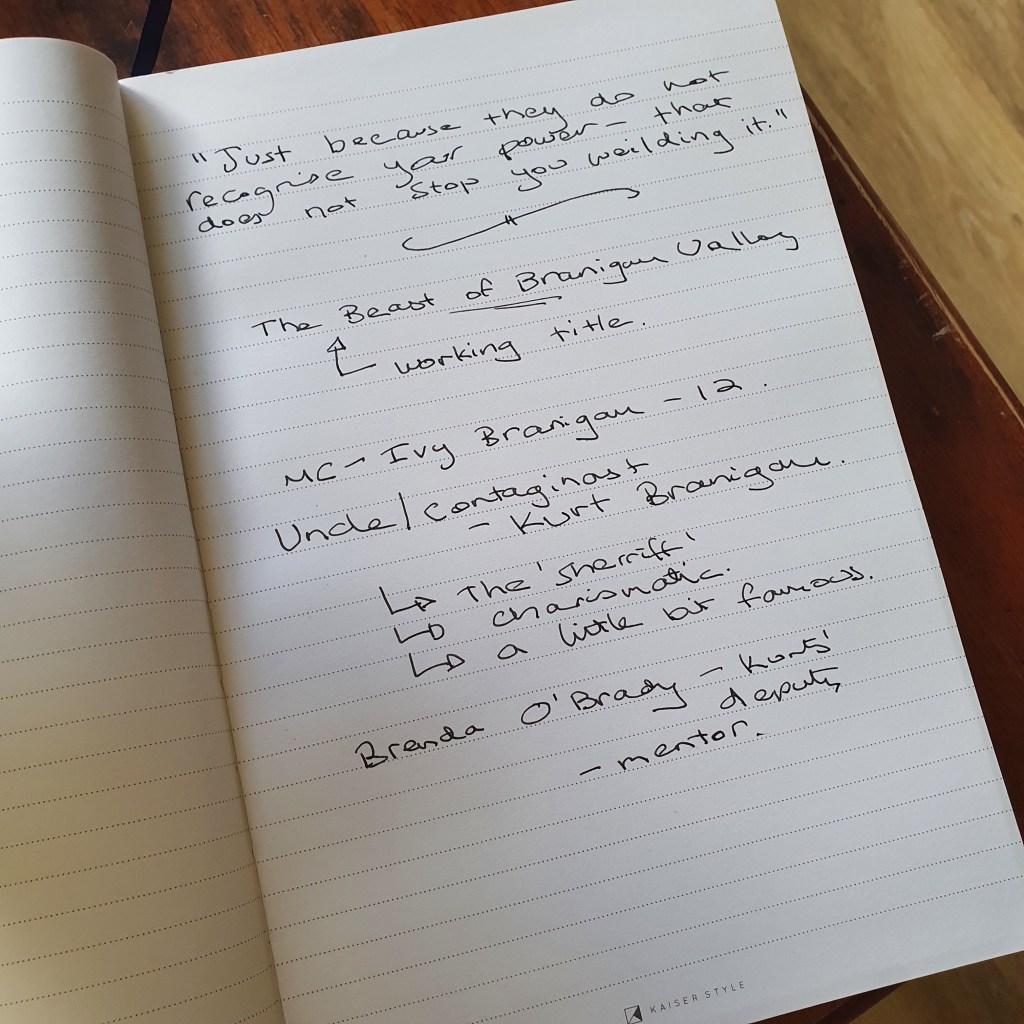 "Just because they do not
recognise your power - that
does not stop you weilding it."
The Beast of Branigan Valley
working title.
MC - Ivy Branigan - 12.
Uncle/Contaginast
- Kurt Branigan.
The 'sherriff'
charismatic.
a little bit famous.
Brenda O'Brady - Kurts'
deputy
- mentor.
KAISER STYLE